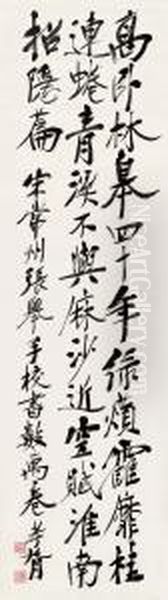 高卧林皋四十年緑煩靃靡桂
連蜷青溪不與麻沙近空賦淮南
招隱篇 宋常州張舉手校書數萬卷